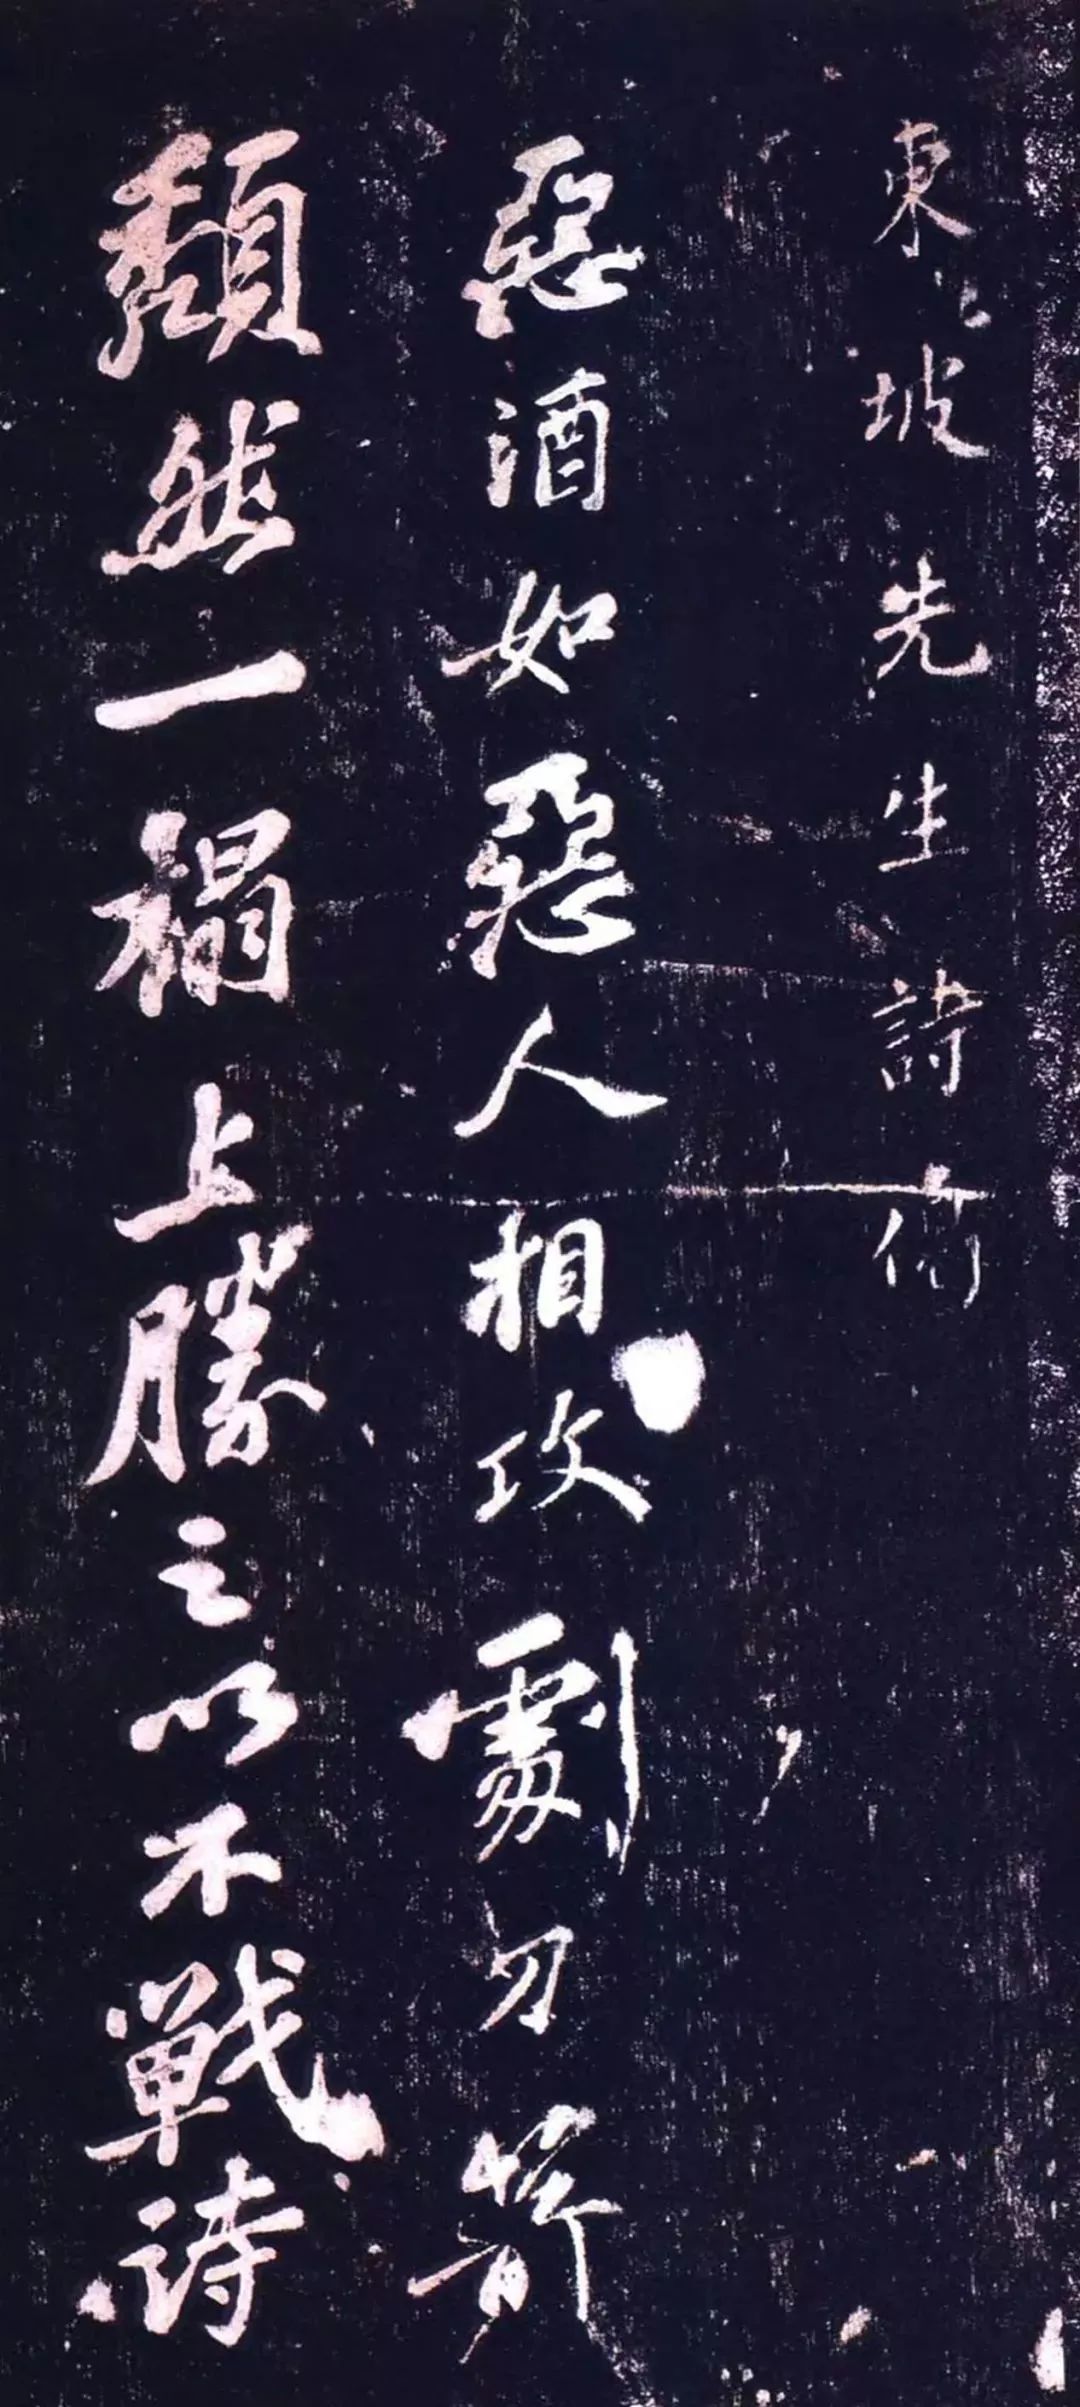 東坡先生詩
惡酒如惡人相攻劇刀箭
頽然一榻上勝之以不戰詩